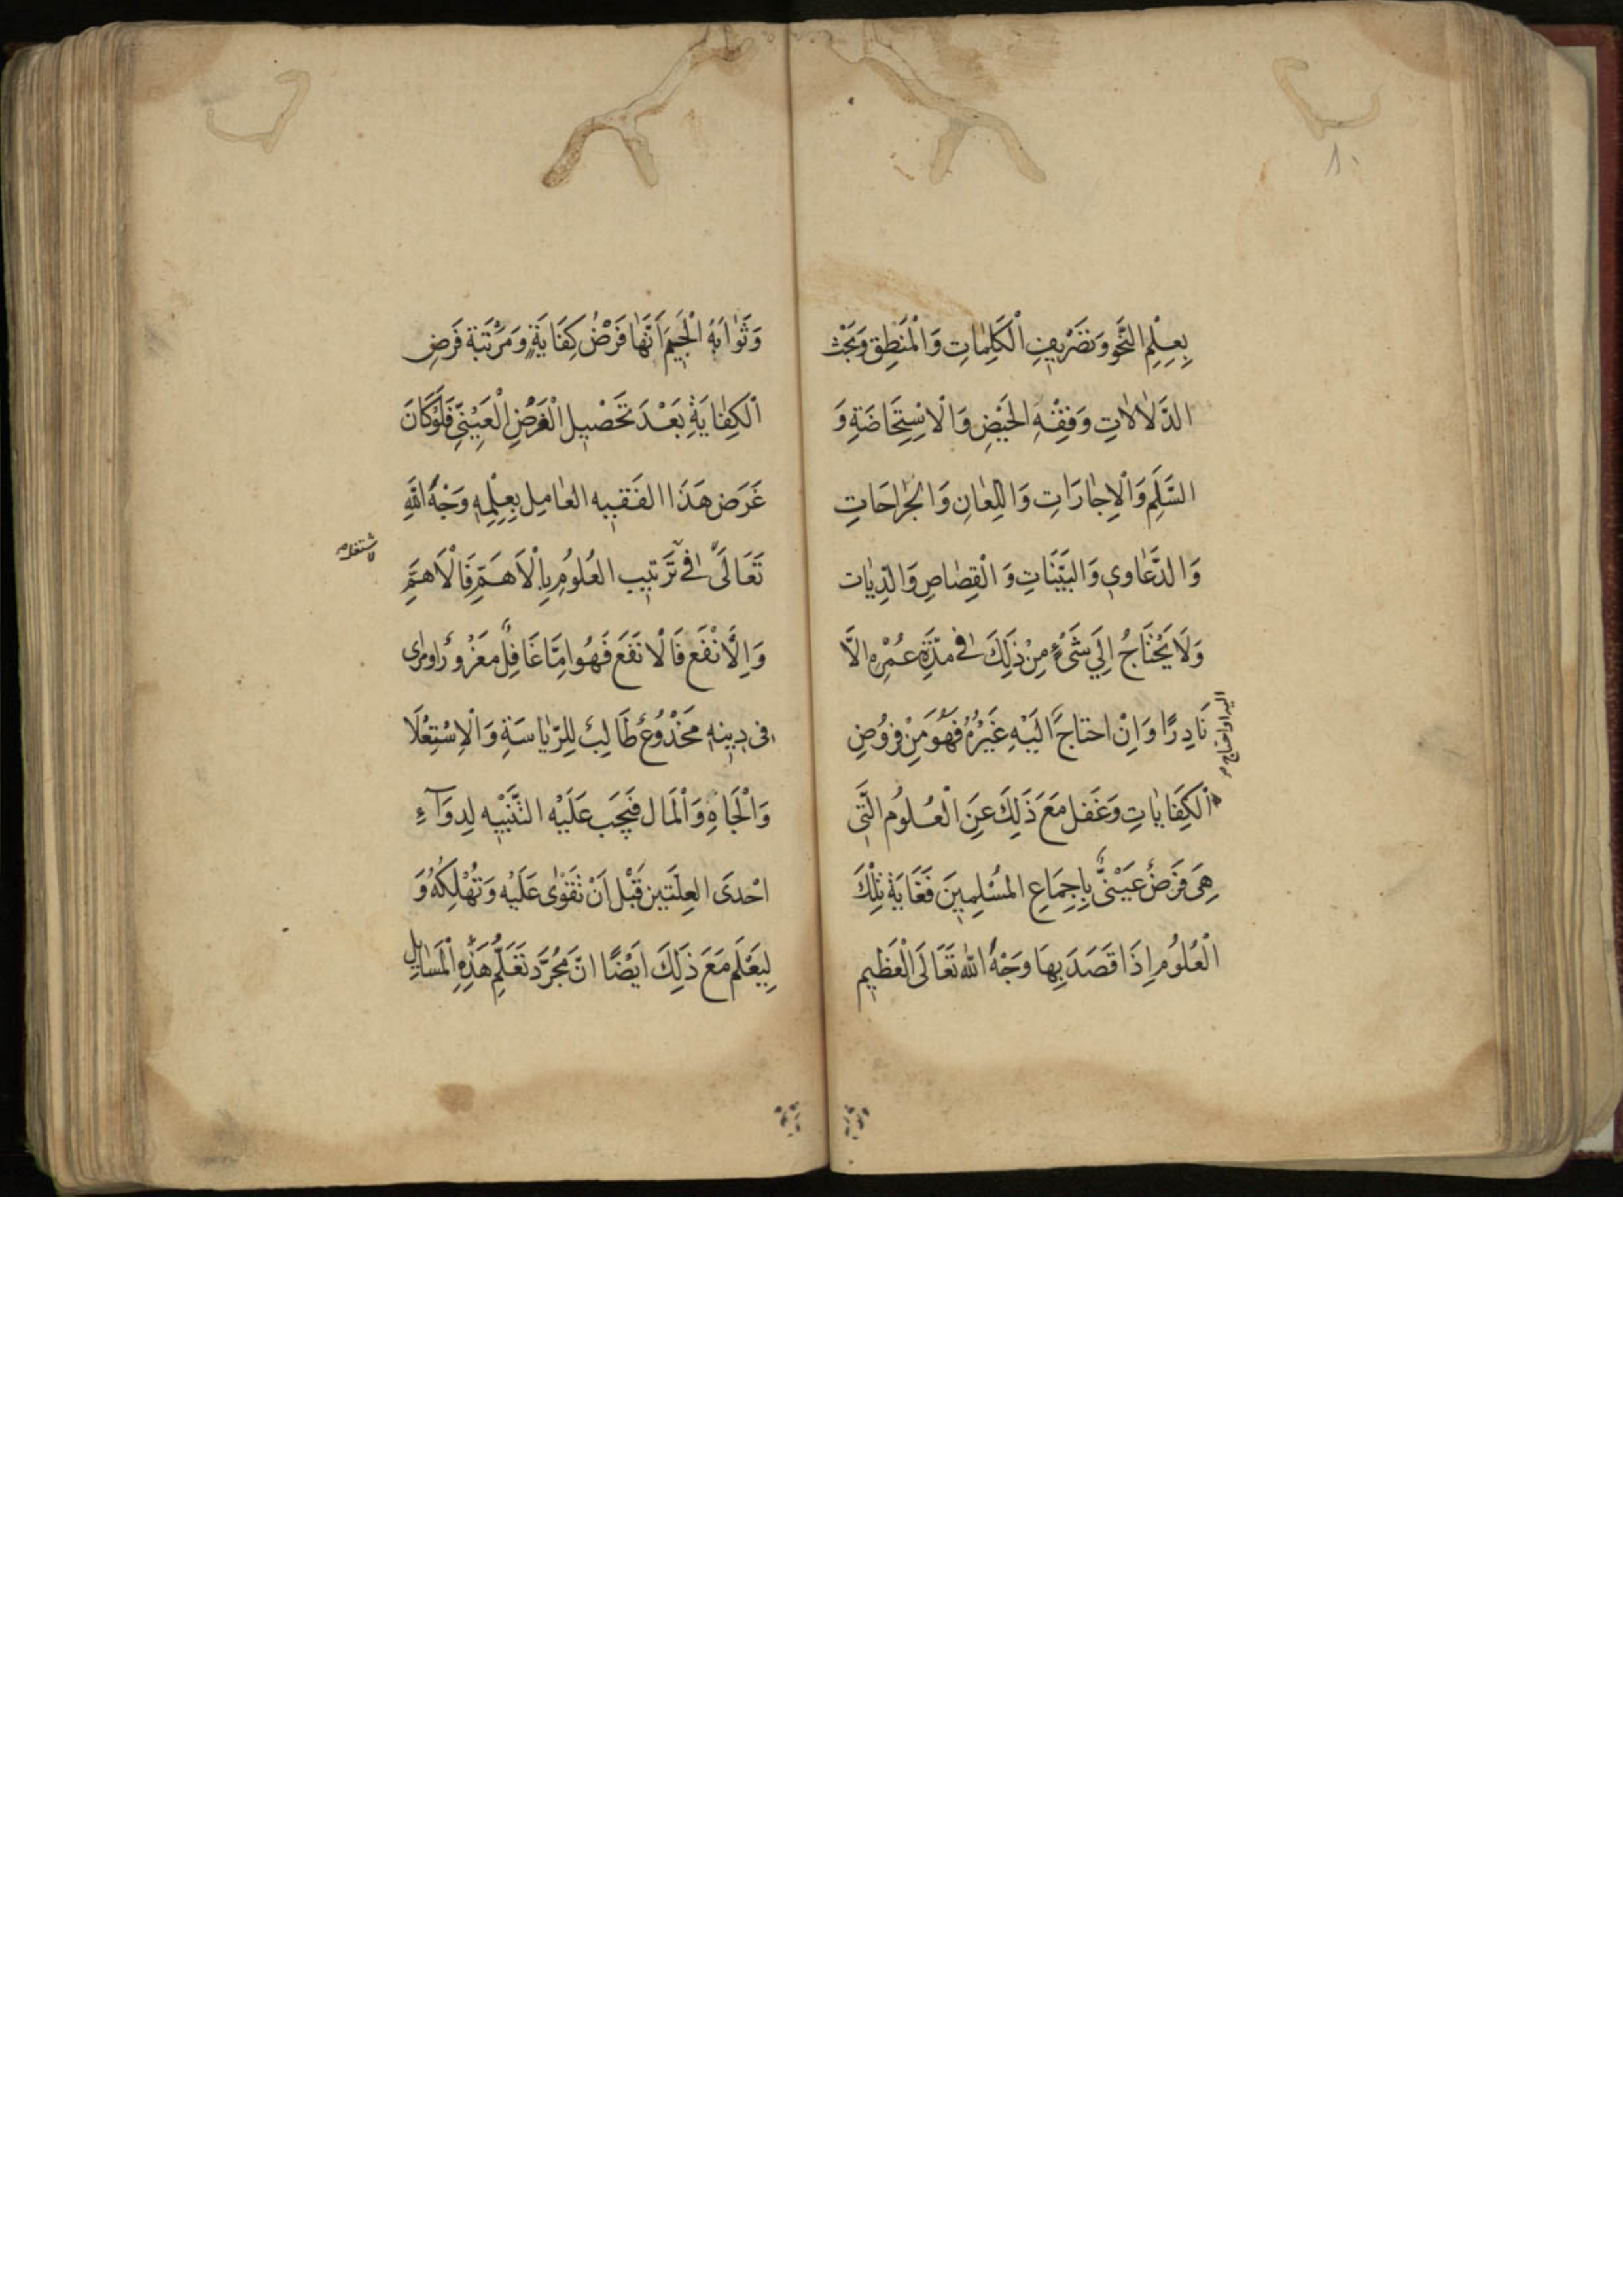 ١٠
بِعِلْمِ النَّحْوِ وَتَصْرِيفِ الْكَلِمَاتِ وَالْمَنْطِقِ وَبَحْثِ
الدَّلَالَاتِ وَفِقْهِ الْحَيْضِ وَالْاسْتِحَاضَةِ وَ
السَّلَمِ وَالْاِجَارَاتِ وَاللِّعَانِ وَالْجِرَاحَاتِ
وَالدَّعَاوِي وَالبَيِّنَاتِ وَالْقِصَاصِ وَالدِّيَات
وَلَا يَحْتَاجُ اِلَي شَىْءٍ مِنْ ذَلِكَ فِي مُدَّةِ عُمْرِهِ اِلَّا
نَادِرًا وَاِنْ احتَاجَ اِلَيْهِ غَيْرُهُ فَهُوَ مِنْ فُرُوضِ
اليه او احتاج
الْكِفَايَاتِ وَغَفَل مَعَ ذَلِكَ عَنِ الْعُلُومِ الَّتِى
هِىَ فَرْضُ عَيْنىٌّ بِاِجْمَاعِ المُسْلِمِينَ فَغَايَةُ تِلْكَ
الْعُلُومِ اِذَا قَصَدَ بِهَا وَجْهُ اللّٰه تَعَالَى الْعَظِيمِ
وَثَوَابَهُ الْجَسِيمَ اَنَّهَا فَرْضُ كِفَايَةٍ وَمَرْتَبَة فَرضِ
الْكِفَايَةِ بَعْدَ تَحْصِيلِ الْفَرْضِ الْعَيْنِىِّ فَلَوْ كَانَ
غَرَض هَذَا الفَقِيه العَامِل بِعِلْمِهِ وَجْهُ اللّٰهِ
تَعَالَى فِي تَرْتيب العُلُومِ بِالْاَهَمِّ فَالْاَهَمِّ
لاشتغل
وَالْاَنْفَع فَالْانَفَع فَهُو اِمَّا غَافِلٌ مغَرُورٌ اومراى
فى دِينِهِ مَخْدُوعٌ طَالِبٌ لِلرِّيَاسَةِ وَالْاِسْتِعْلَا
وَالْجَاهِ وَالْمَال فَيَجَب عَلَيْهِ التَّنَبِيه لِدوَآءِ
احْدىَ العِلَّتَين قَبْل اَنْ تَقَوْى عَلَيْهِ وَتُهْلِكَهُ وَ
لِيَعْلَم مَعَ ذَلِكَ اَيْضًا انّ مُجَرَّد تَعَلُّمِ هَذِهِ الْمَسَايِلِ